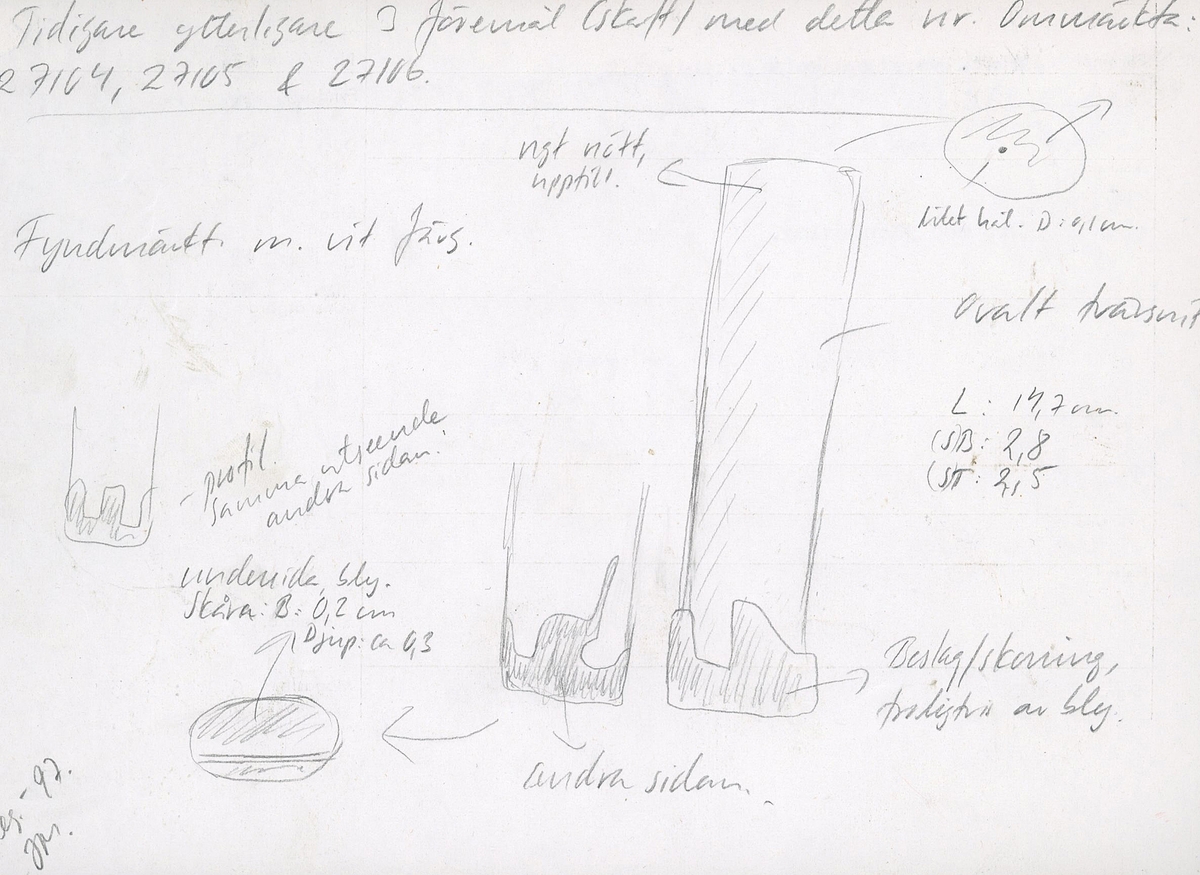 Tidigare ytterligare 3 föremål (skaft) med detta nr. Ommärkta:
27104, 27105 & 27106.
ngt nött,
upptill.
litet hål. D: 0,1 cm.
Fyndmärkt. m. vit färg.
Ovalt tvärsnitt
L: 14,7 cm.
(S)B: 2,8
(S)T: 2,5
profil.
Samma utseende
andra sidan.
undersida, bly.
Skåra: B: 0,2 cm
Djup: ca 0,3
Beslag/skoning,
troligtvis av bly.
andra sidan.
-97.